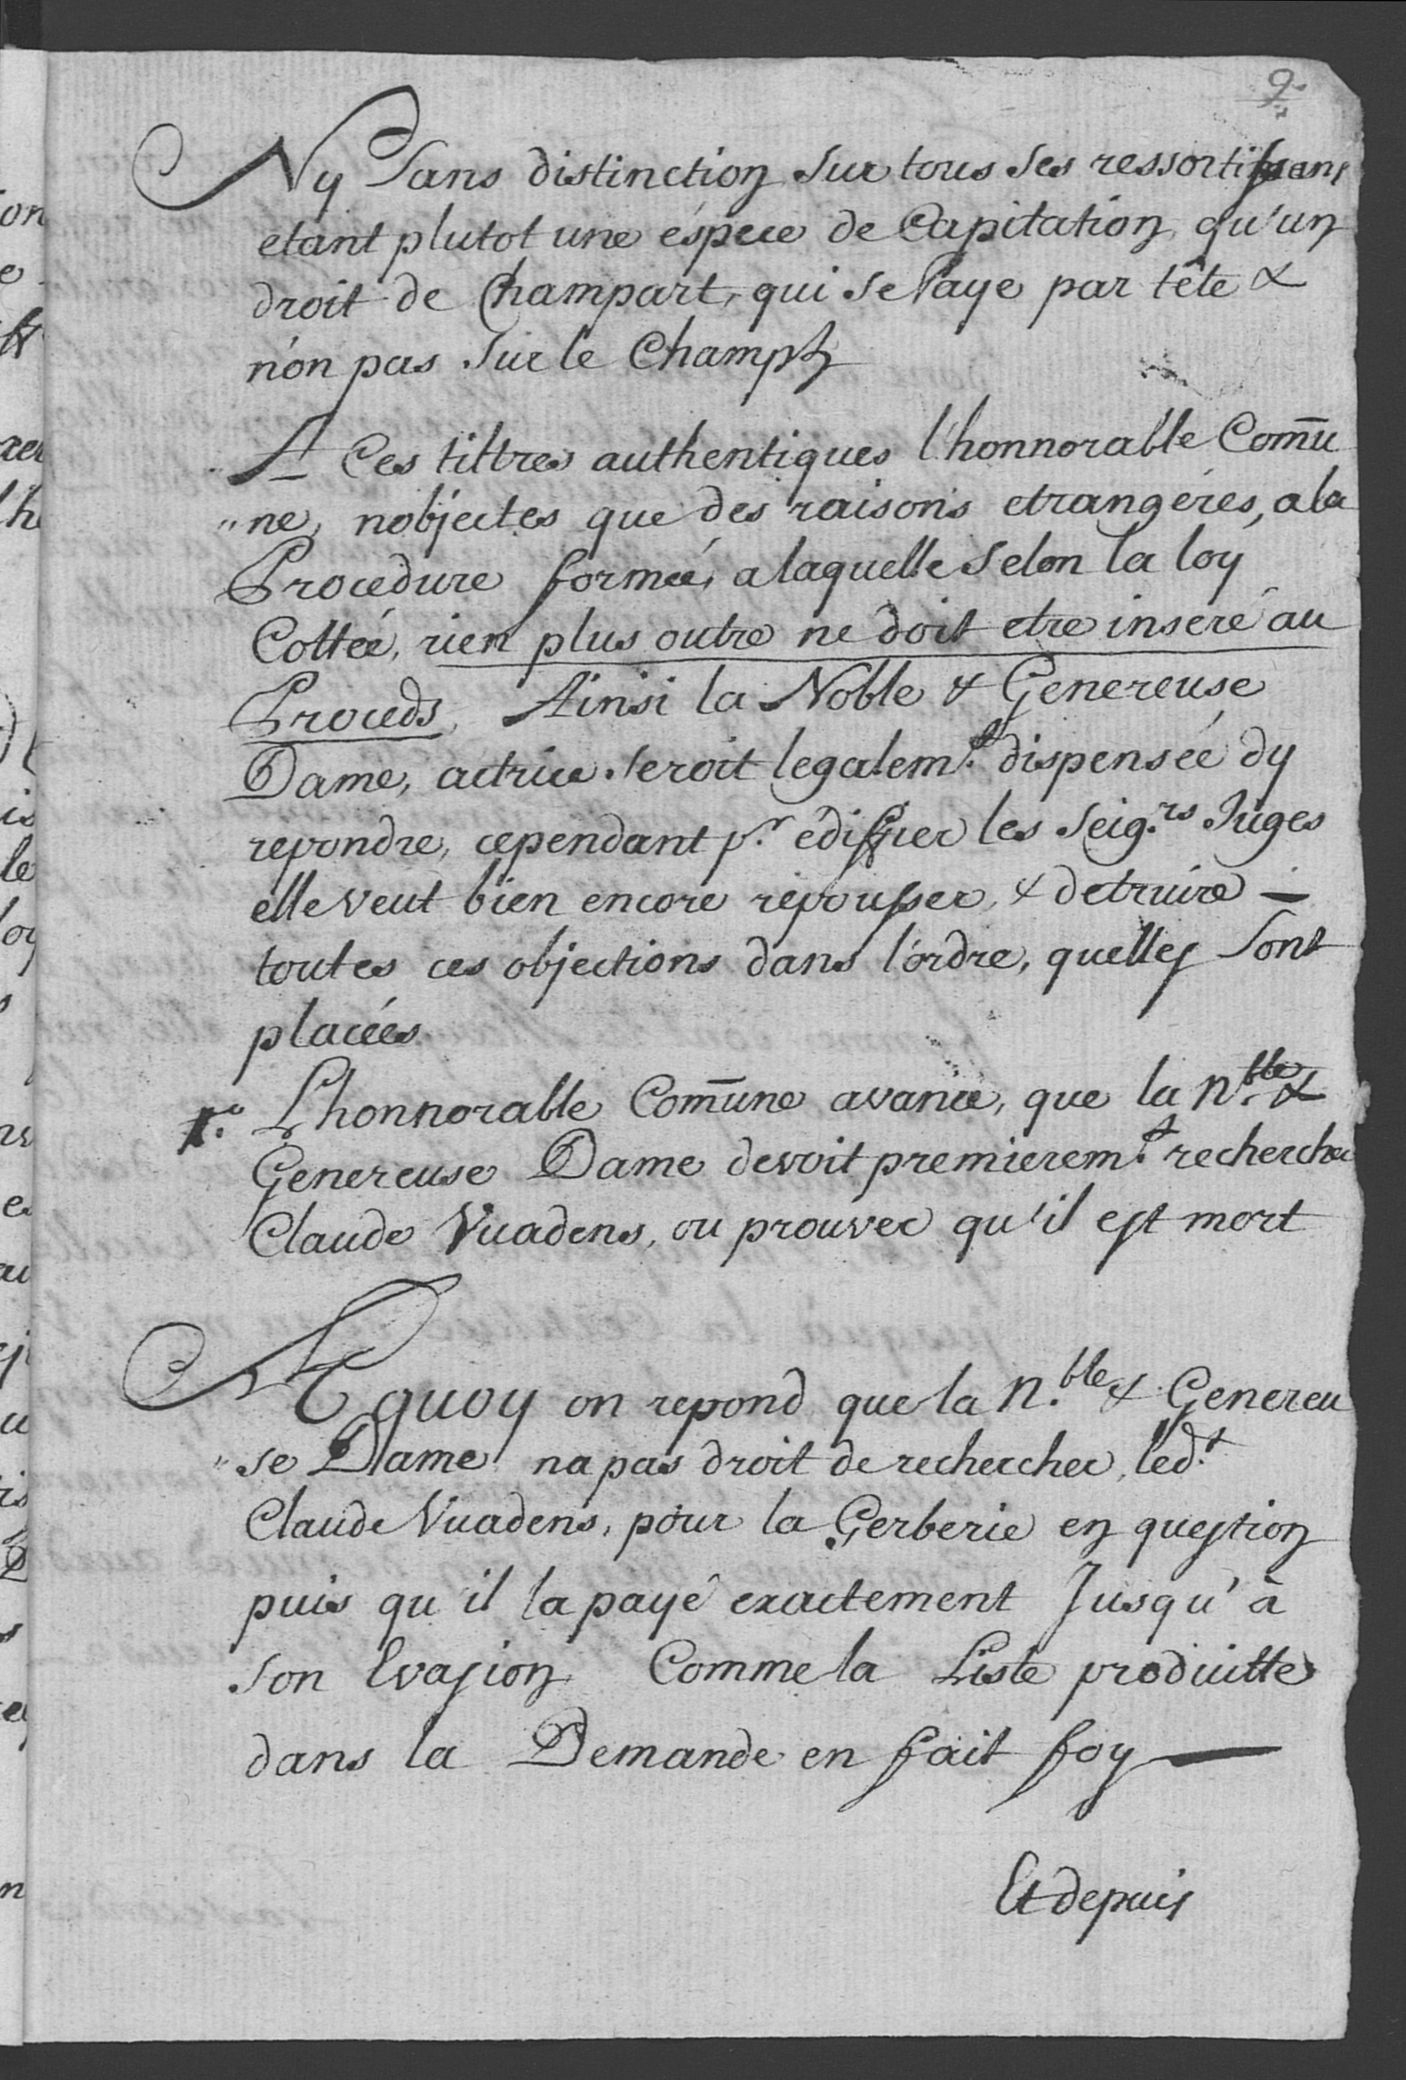 9.
Ny Sans distinction Sur tous Ses ressortissans
etant plutot une éspece de Capitation, qu'un
droit de Champart, qui se Paye par tête &
n'on pas Sur le Champ
A Ces tiltres authentiques l'honnorable Com̄u
"ne, nobjectes que des raisons etrangéres, a la
Procedure formeé, a laquelle Selon la loy
Cotteé, rien plus outre ne doit etre inseré au
Proceds. Ainsi la Noble & Genereuse
Dame, actrice seroit legalem.t dispenseé dy
repondre, cependant p.r édiffier les Seig.rs Juges
elle veut bien encore repousser, & detruire —
toutes ces objections dans l'ordre, quelles Sont
placeés.
1.o L'honnorable Com̄une avance, que la N.ble &
Genereuse Dame devoit premierem.t rechercher
Claude Vuadens, ou prouver qu'il est mort
A quoy on repond que la N.ble & Genereu
"se Dame na pas droit de rechercher, led.t
Claude Vuadens, pour la Gerberie en question
puis qu'il la payé exactement Jusqu'à
son Evasion Comme la Liste produitte
dans la Demande en fait foy —
Et depuis